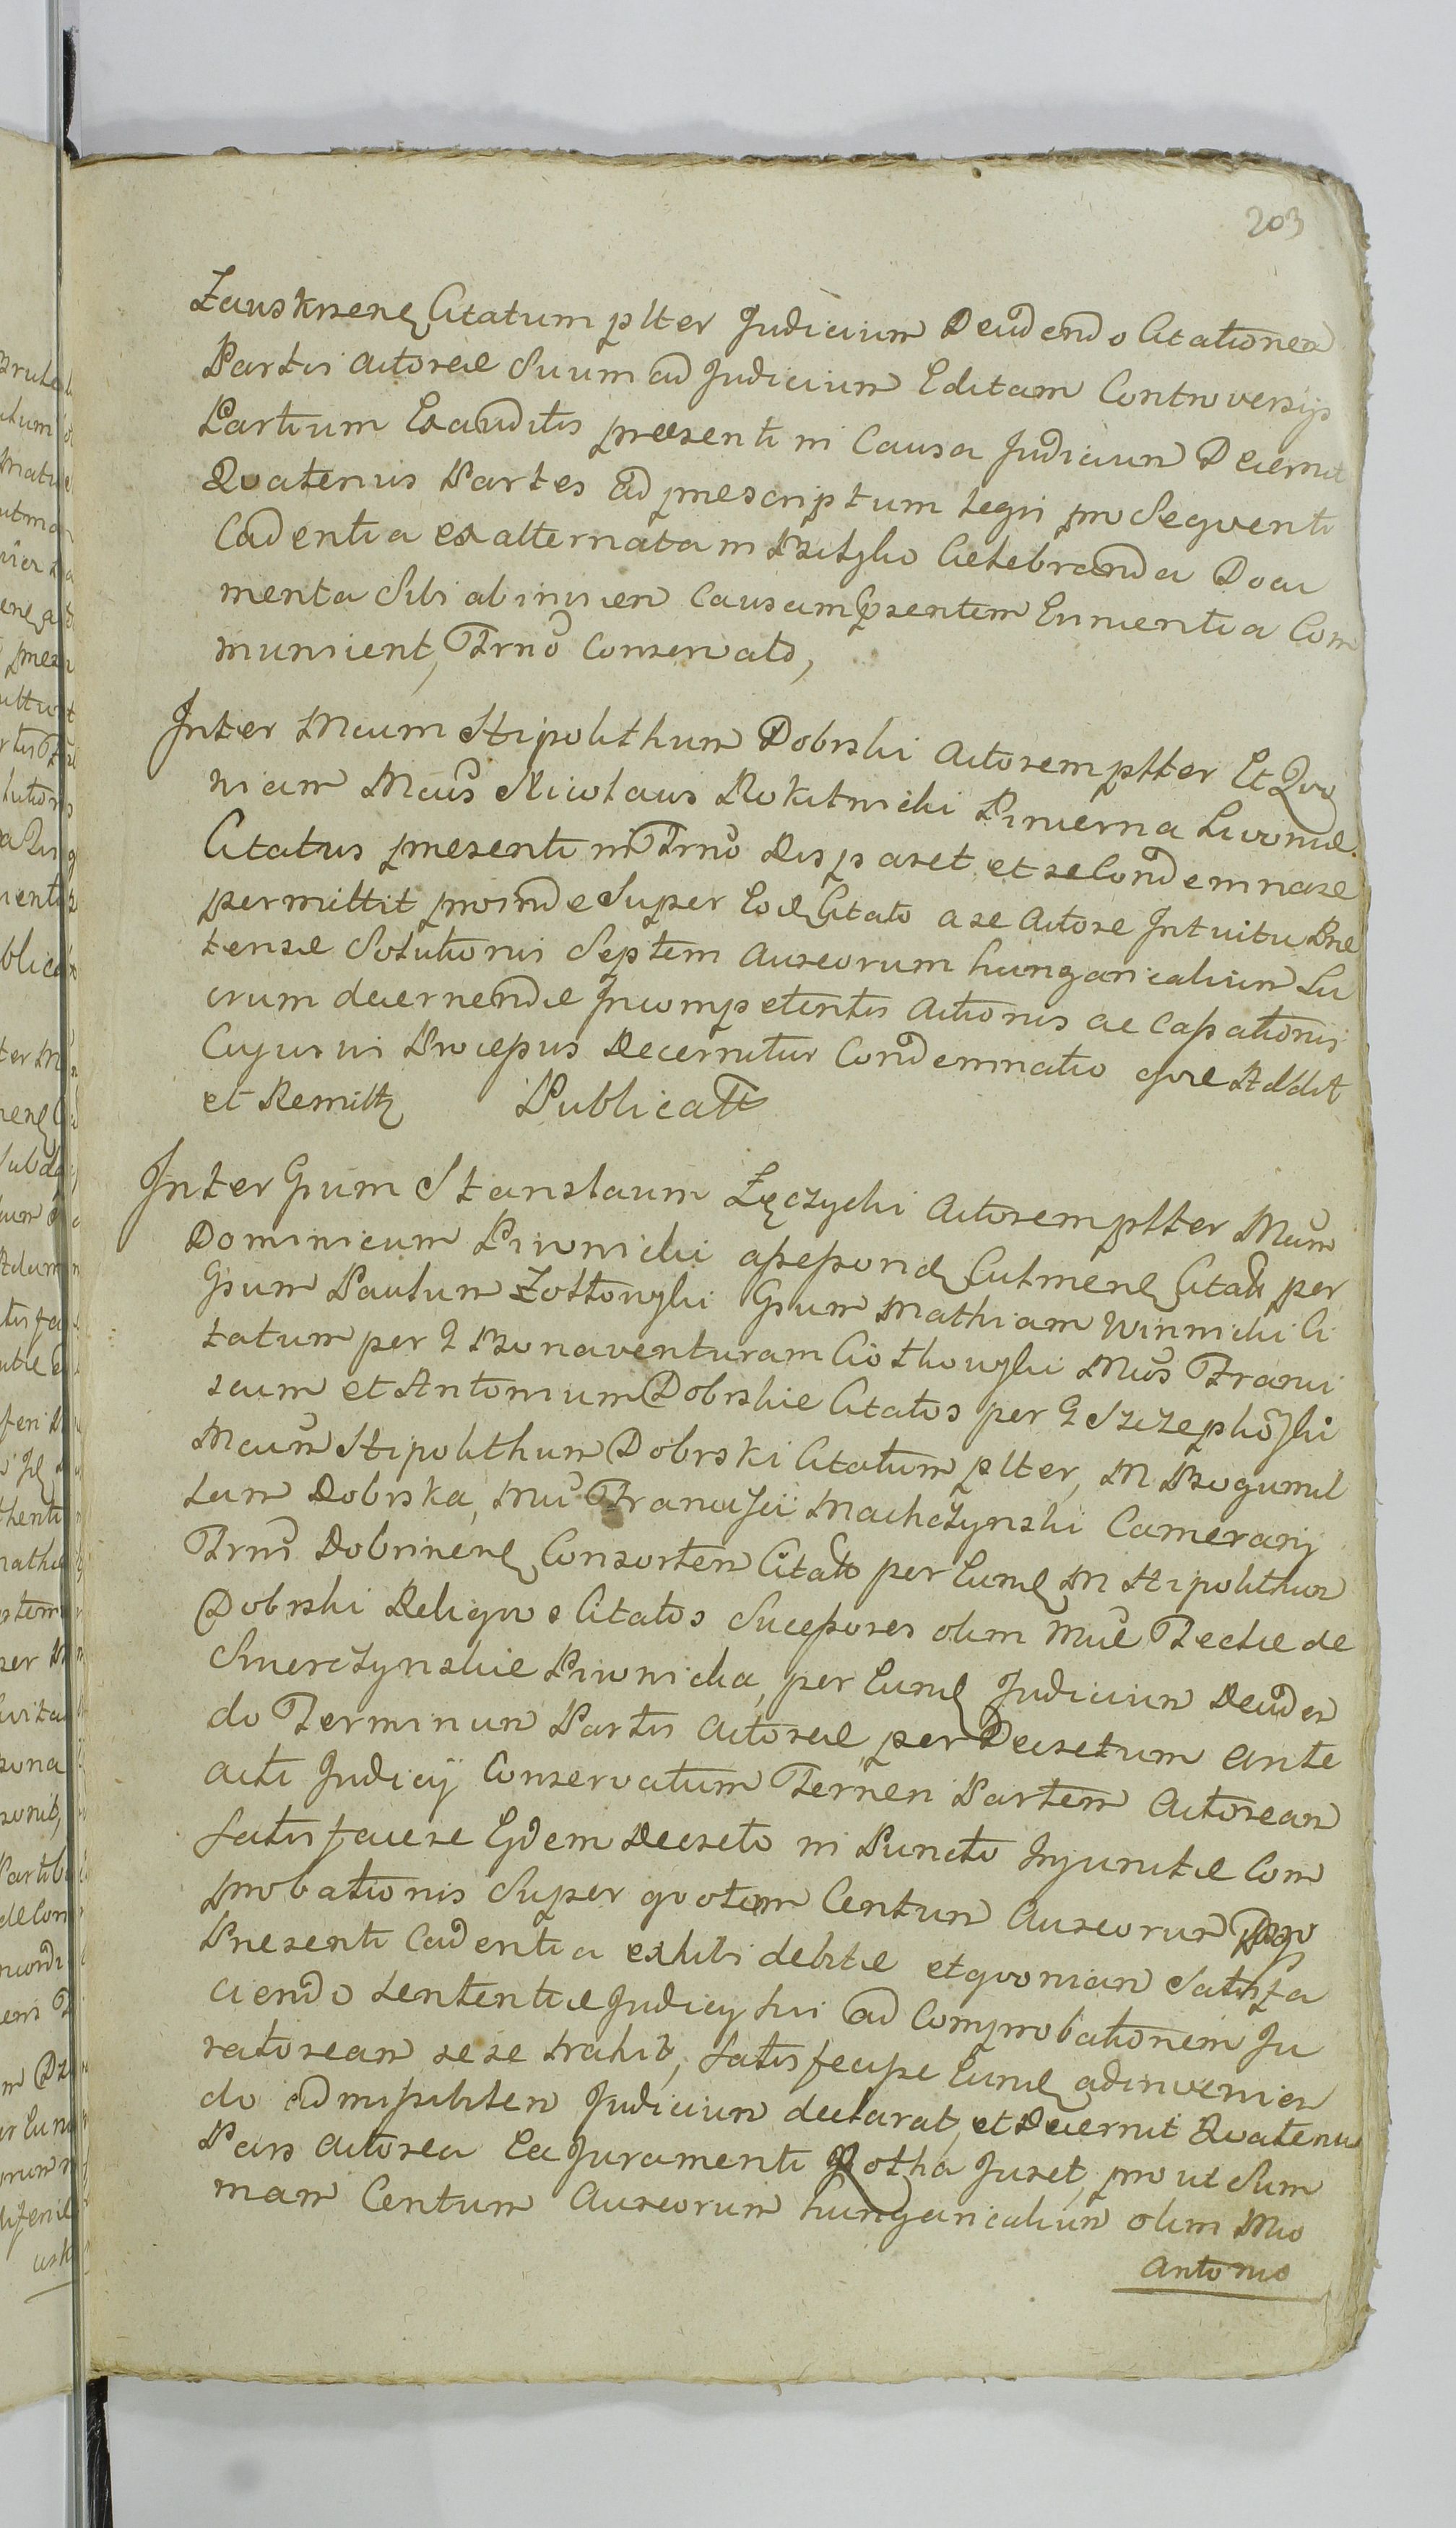 203
Zauskrsene Citatum plter Judicium Decidendo Citationem
Partis Actoreæ Suum ad Judicium Editam Controversijs
Partium Exauditis præsenti in Causa Judicium Decernit
Quatenus Partes ad præscriptum Legis pro Sequenti
Cadentia ex alternata in celebranda Docu
menta Sibi ab invicem Causam psentem Emmentia Com
municent, Trno Conservato,
Inter Mcum Hipolithum Dobrski Actorem plter Et Quo
niam Mcus Nicolaus Rokitnicki Pincerna Livoniæ
Citatus præsenti in Trno Disparet et se Condemnare
permittit proinde Super Eod Citato a se Actore Intuitu Præ
tensæ Solutionis Septem Aureorum hungaricalium Lu
crum decernendæ Incompetentis Actionis ac Cassationis
Cujusvis Processus Decernitur Condemnatio qvæ Addit
et Remittz Publicatt
Inter Gsum Stanslaum Łęczycki Actorem plter Mcum
Dominicum Piwnicki assessond Culmene Citatt per
Gsum Paulum Zottowski Gsum Mathiam Winnicki Ci
tatum per G Bonaventuram Ciothowski Mcos Franci
scum et Antonium Dobrskie Citatos per G
Mcum Hipolithum Dobrski Citatum plter, M Bogumil
lam Dobrska, Mci Francisci Machczynski Camerarij
Trris Dobrinene Consortem Citatt per Eund M Hipolithum
Dobrski Reliqvos Citatos Sucessores olim Mcæ Teclæ de
Smerczynskie Piwnicka, per Eund Judicium Deciden
do Terminum Partis Actoreæ per Decretum Ante
acti Judicij Conservatum Ternen Partem Actoream
Satisfacere Ejdem Decreto in Puncto Injunctæ Com
probationis Super qvotam Centum Aureorum
Presenti Cadentia exhibi debitæ et qvoniam Satisfa
ciendo Sententiæ Judicij Sui ad Comprobationem Ju
ratoream sese trahit, Satisfecisse Eund adinvenien
do admissibilem Judicium declarat, et Decernit Quatenus
Pars Actorea Ea Juramenti Rotha Juret, prout Sum
mam Centum Aureorum hungaricalium olim Mco
Antonio